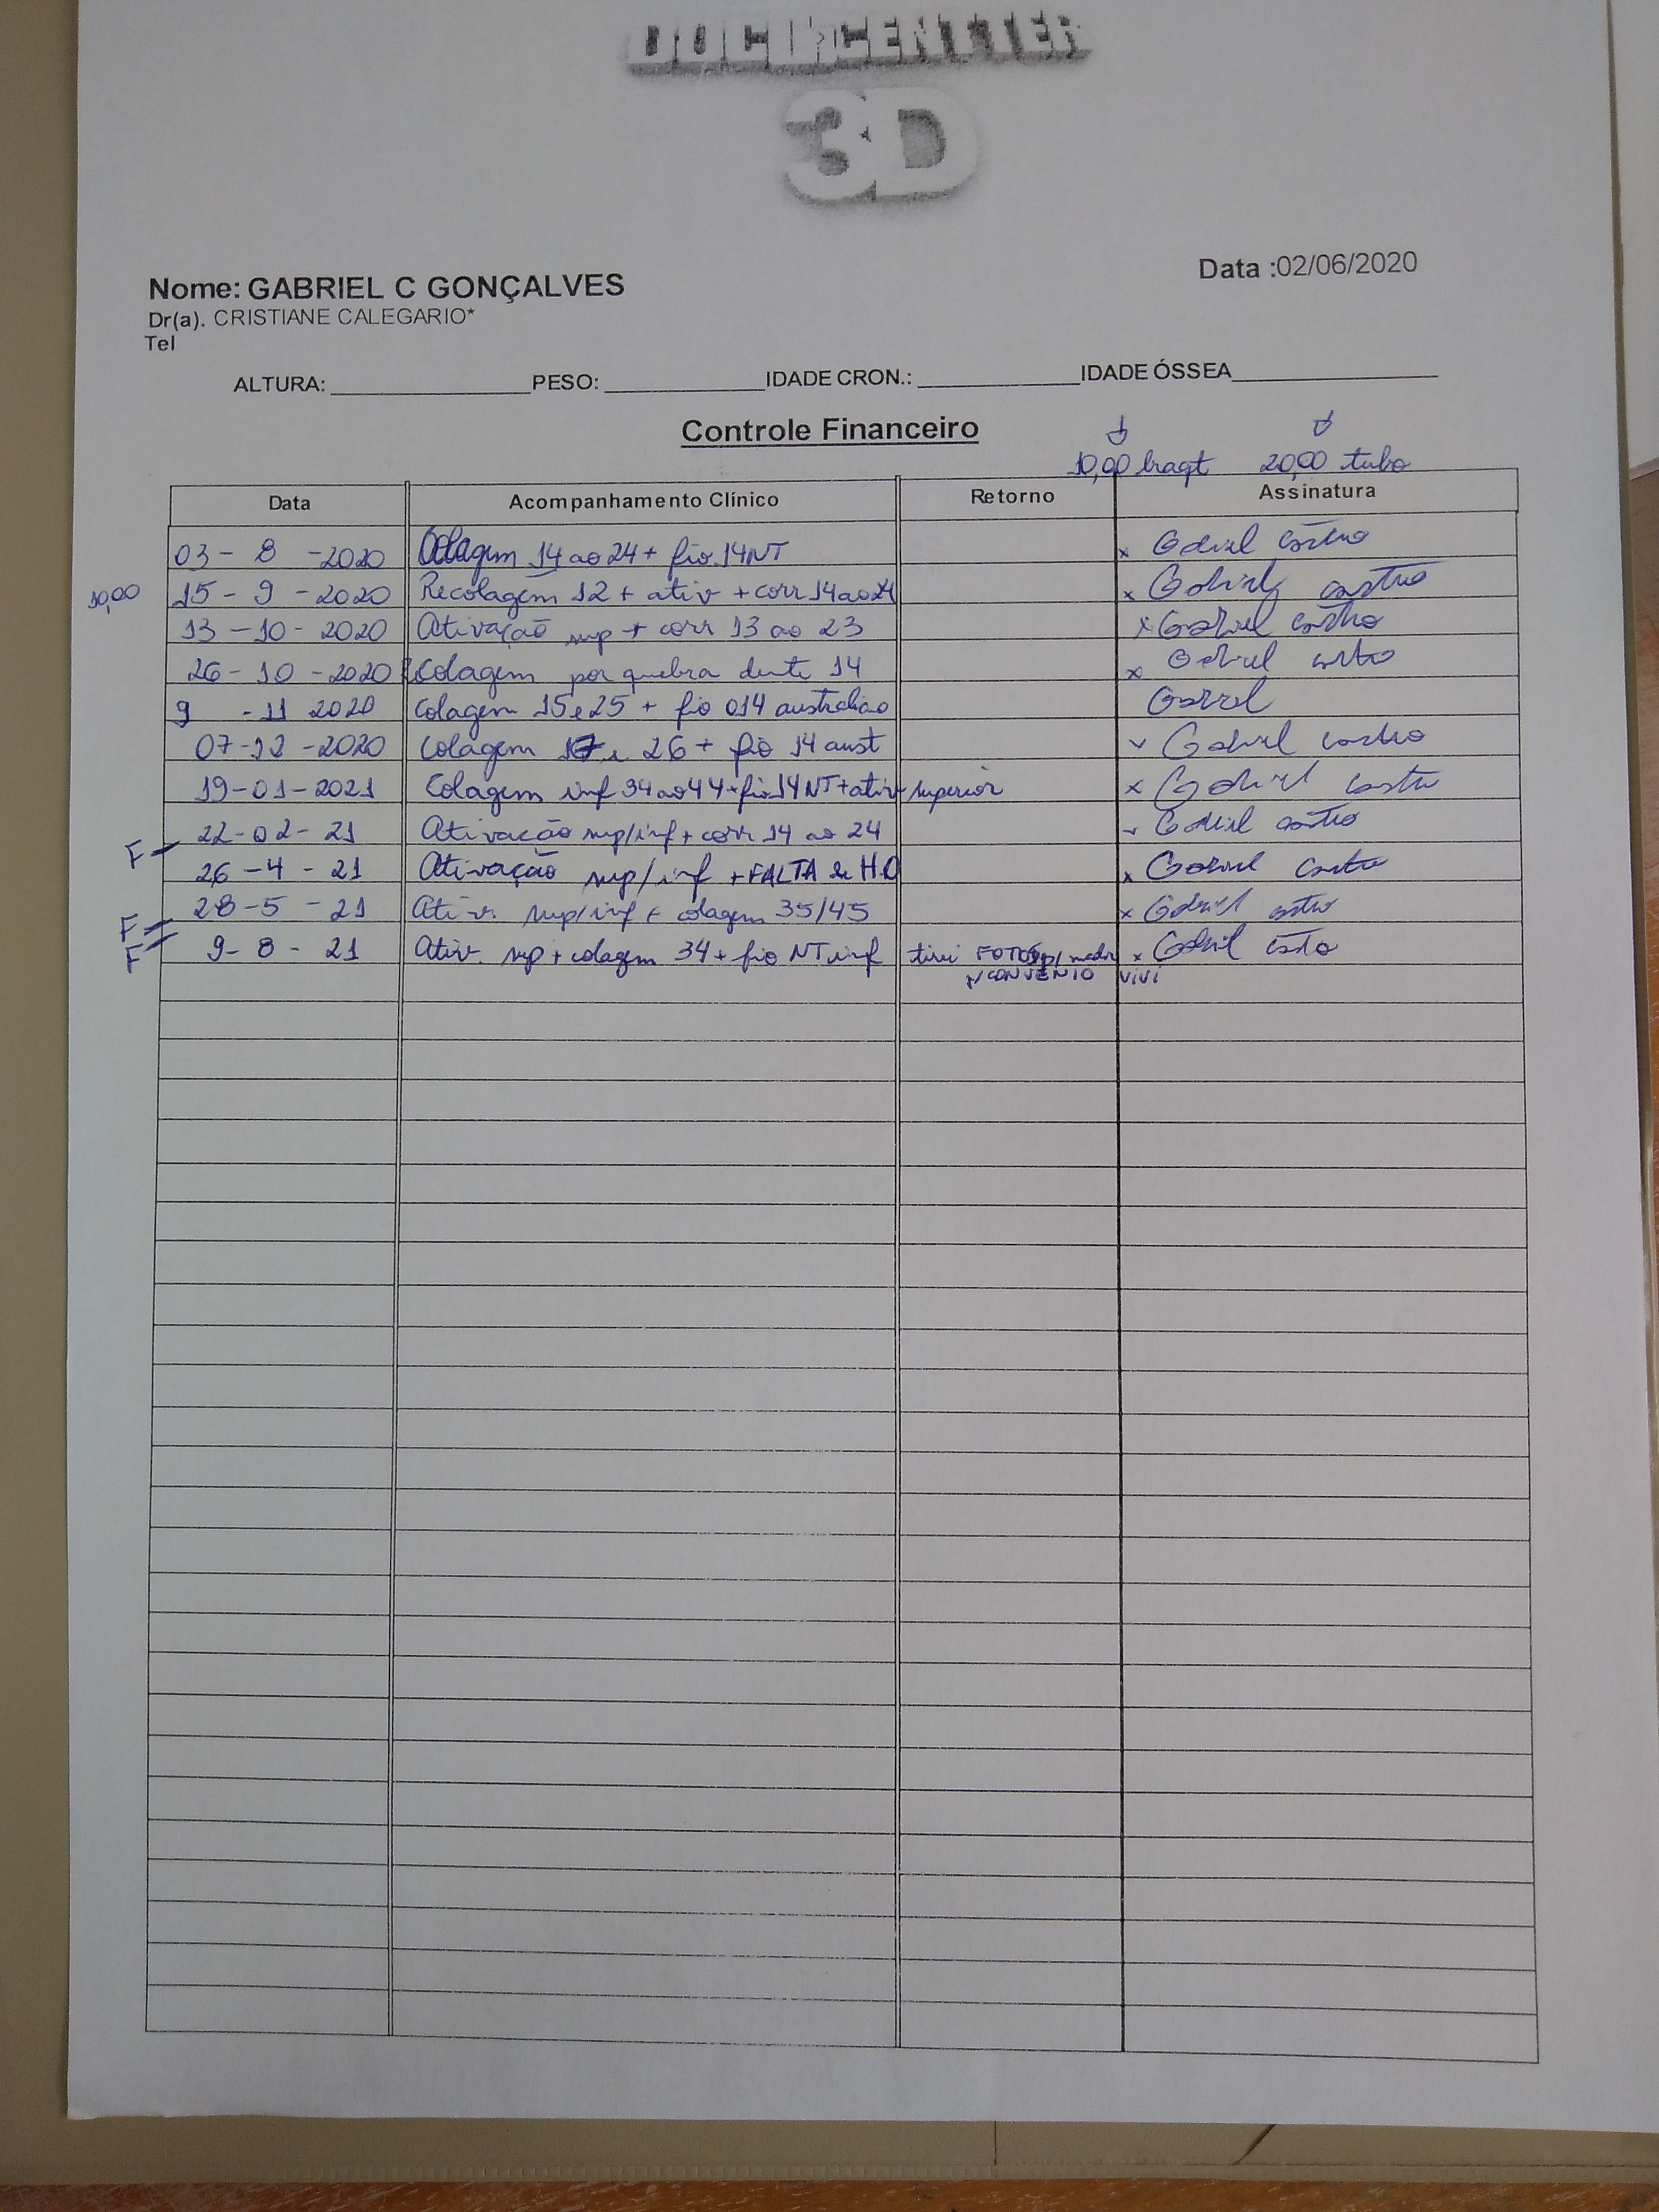 DOCUMCENTTER
3D
Nome: GABRIEL C GONÇALVES
Data :02/06/2020
Dr(a). CRISTIANE CALEGARIO*
Tel
ALTURA: PESO: IDADE CRON.: IDADE ÓSSEA
Controle Financeiro
10,00 braqt 20,00 tubo
Data Acompanhamento Clínico Retorno Assinatura
03 - 8 - 2020 Colagem 14 ao 24 + fio 14 NT x Gabriel castro
10,00 15 - 9 - 2020 Recolagem 12 + ativ + corr 14 ao 24 x Gabriel castro
13 - 10 - 2020 Ativação sup + corr 13 ao 23 x Gabriel castro
26 - 10 - 2020 Recolagem por quebra dente 14 x Gabriel castro
9 - 11 2020 colagem 15 e 25 + fio 014 australiano Gabriel
07-12 -2020 colagem 17 e 26 + fio 14 aust Gabriel castro
19-01-2021 Colagem inf 34 ao 44 + fio 14 NT + ativ superior x Gabriel castro
22-02- 21 Ativação sup/inf + corr 14 ao 24 Gabriel castro
F 26 - 4 - 21 Ativação sup/inf + FALTA de H.O x Gabriel castro
28-5 - 21 Ativ. sup/inf + colagem 35/45 x Gabriel castro
F F 9- 8 - 21 Ativ. sup + colagem 34 + fio NT inf tirei FOTOS x Gabriel castro
CONVÊNIO vivi